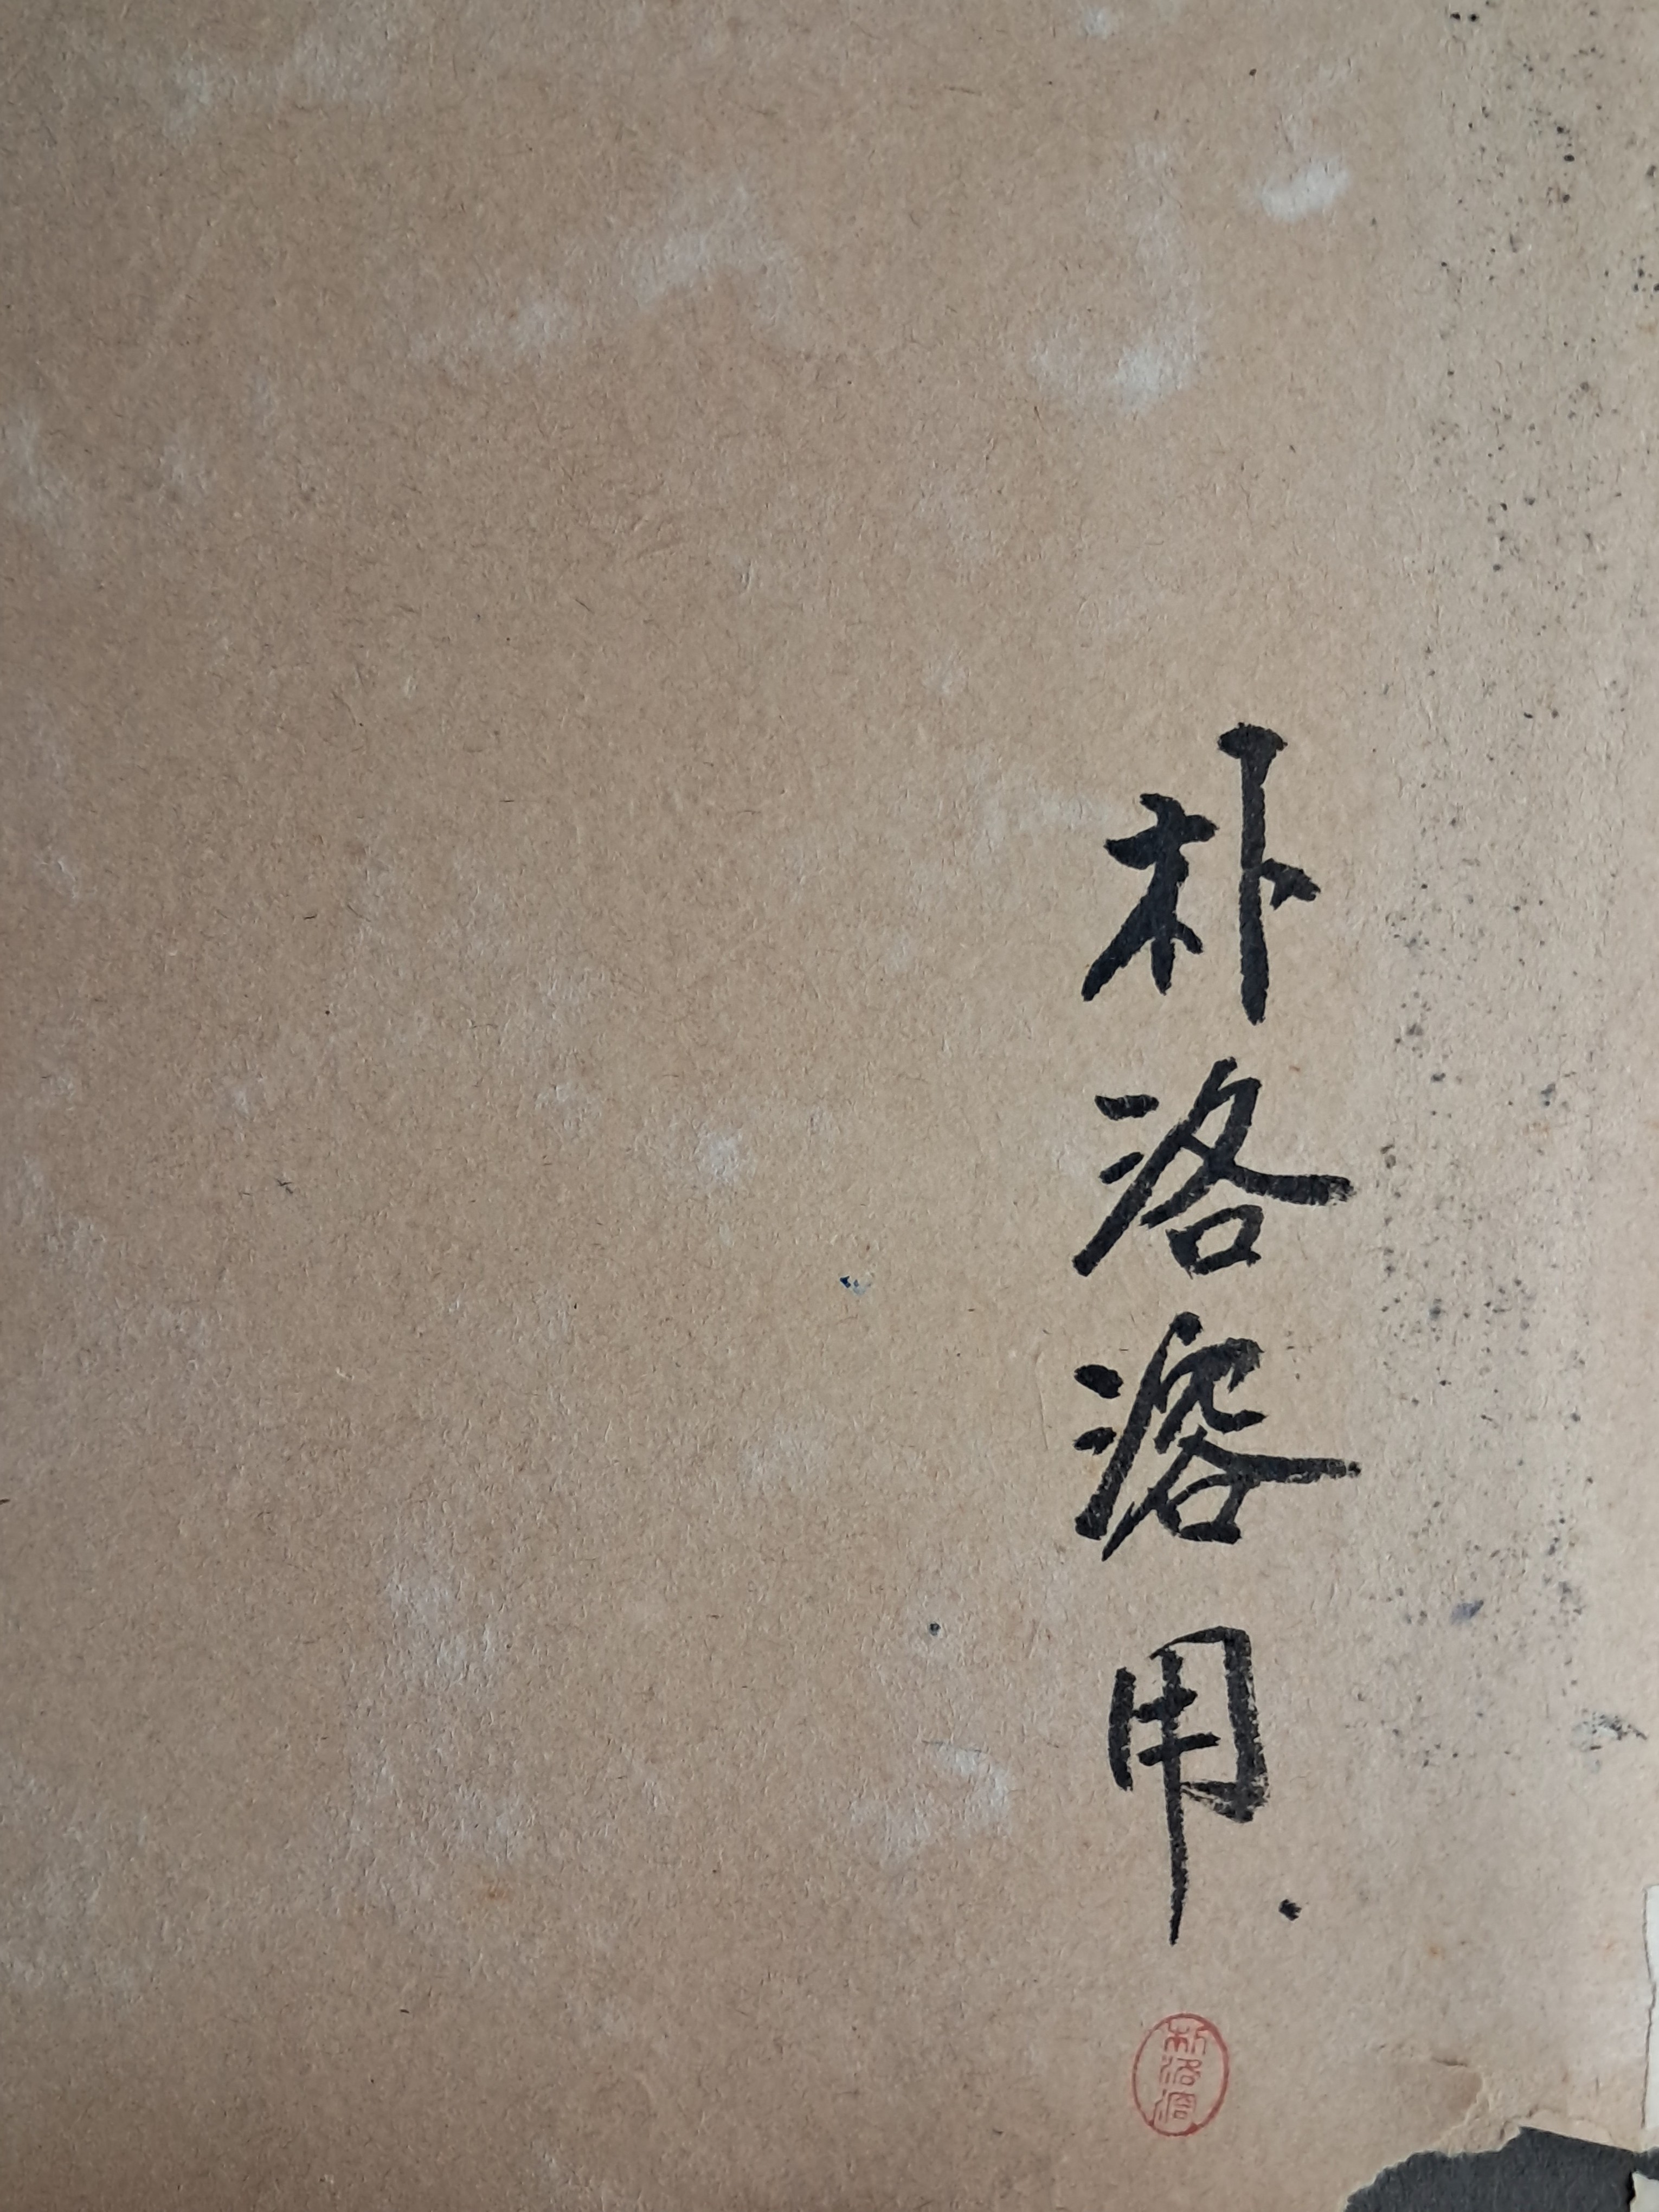 朴洛溶用.